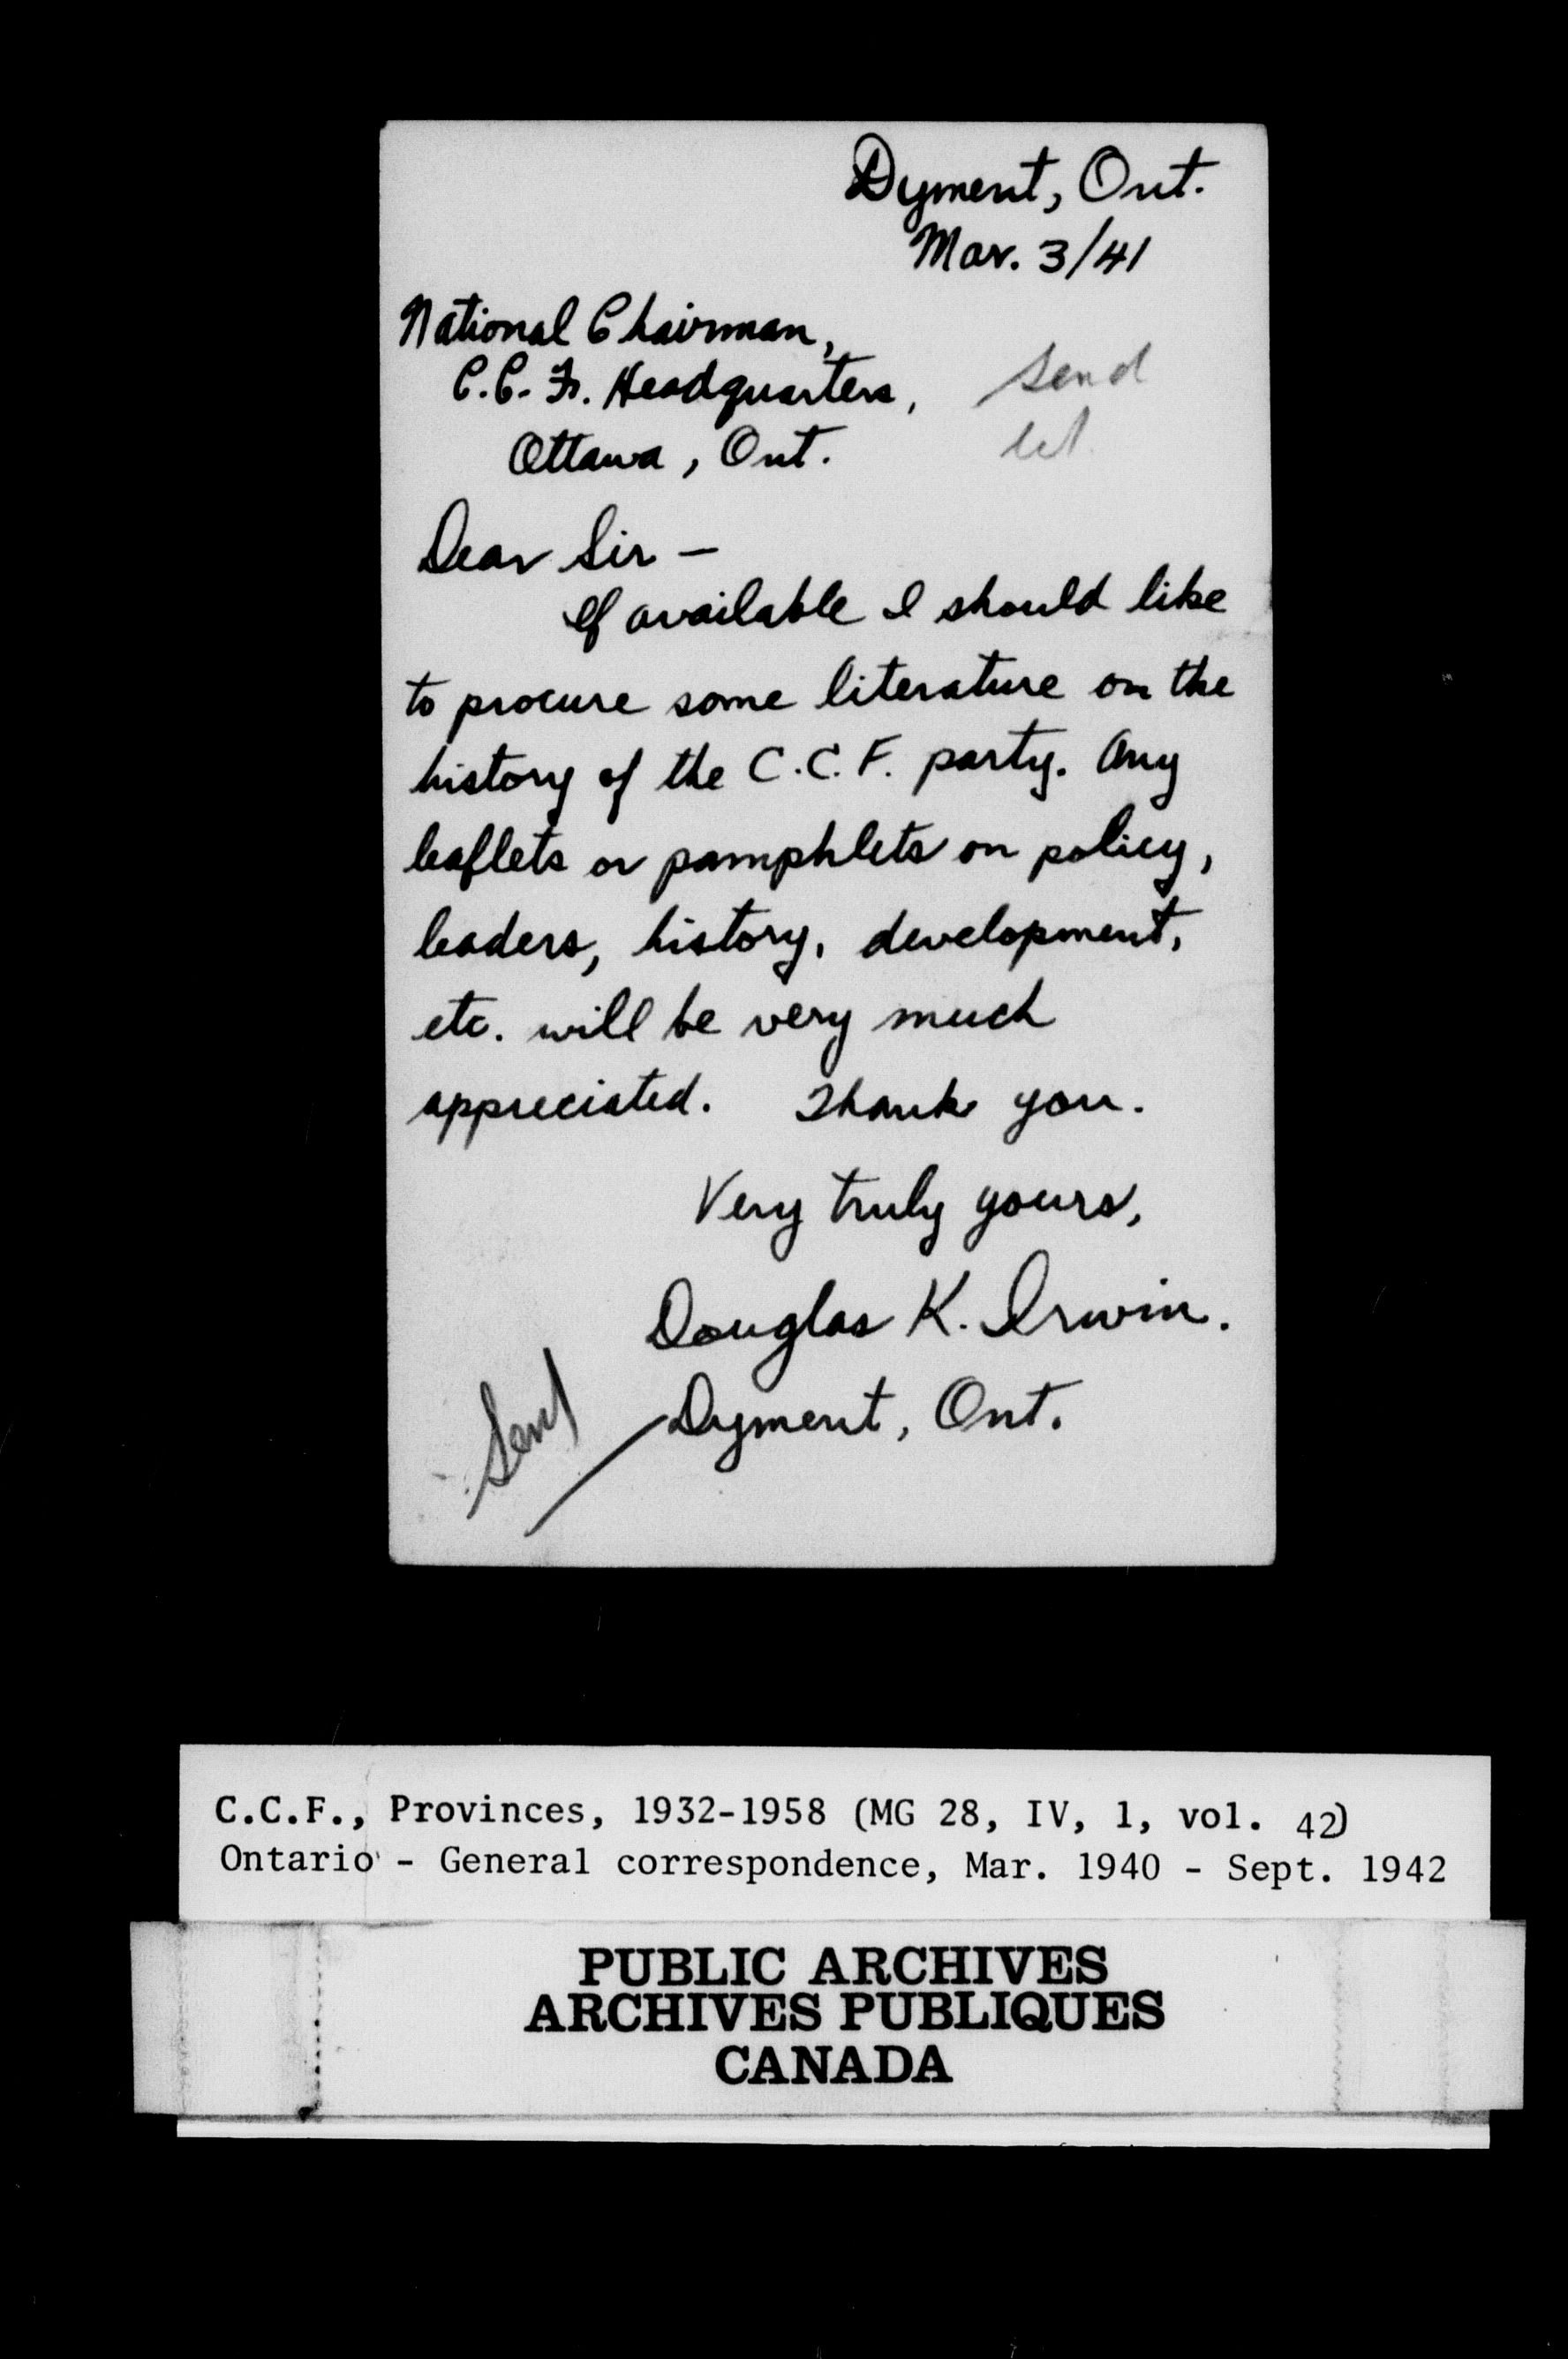 Dyment, Ont.
Mar. 3/41
National Chairman,
C.C.F. Headquarters,
Send
Ottawa, Ont.
lit
Dear Sir —
If available I should like
to procure some literature on the
history of the C.C.F. party. Any
leaflets or pamphlets on policy,
leaders, history, development,
etc. will be very much
appreciated. Thank you.
Very truly yours,
Douglas K. Irwin.
Dyment, Ont.
Sent
C.C.F., Provinces, 1932-1958 (MG 28, IV, 1, vol. 42)
Ontario - General correspondence, Mar. 1940 - Sept. 1942
PUBLIC ARCHIVES
ARCHIVES PUBLIQUES
CANADA